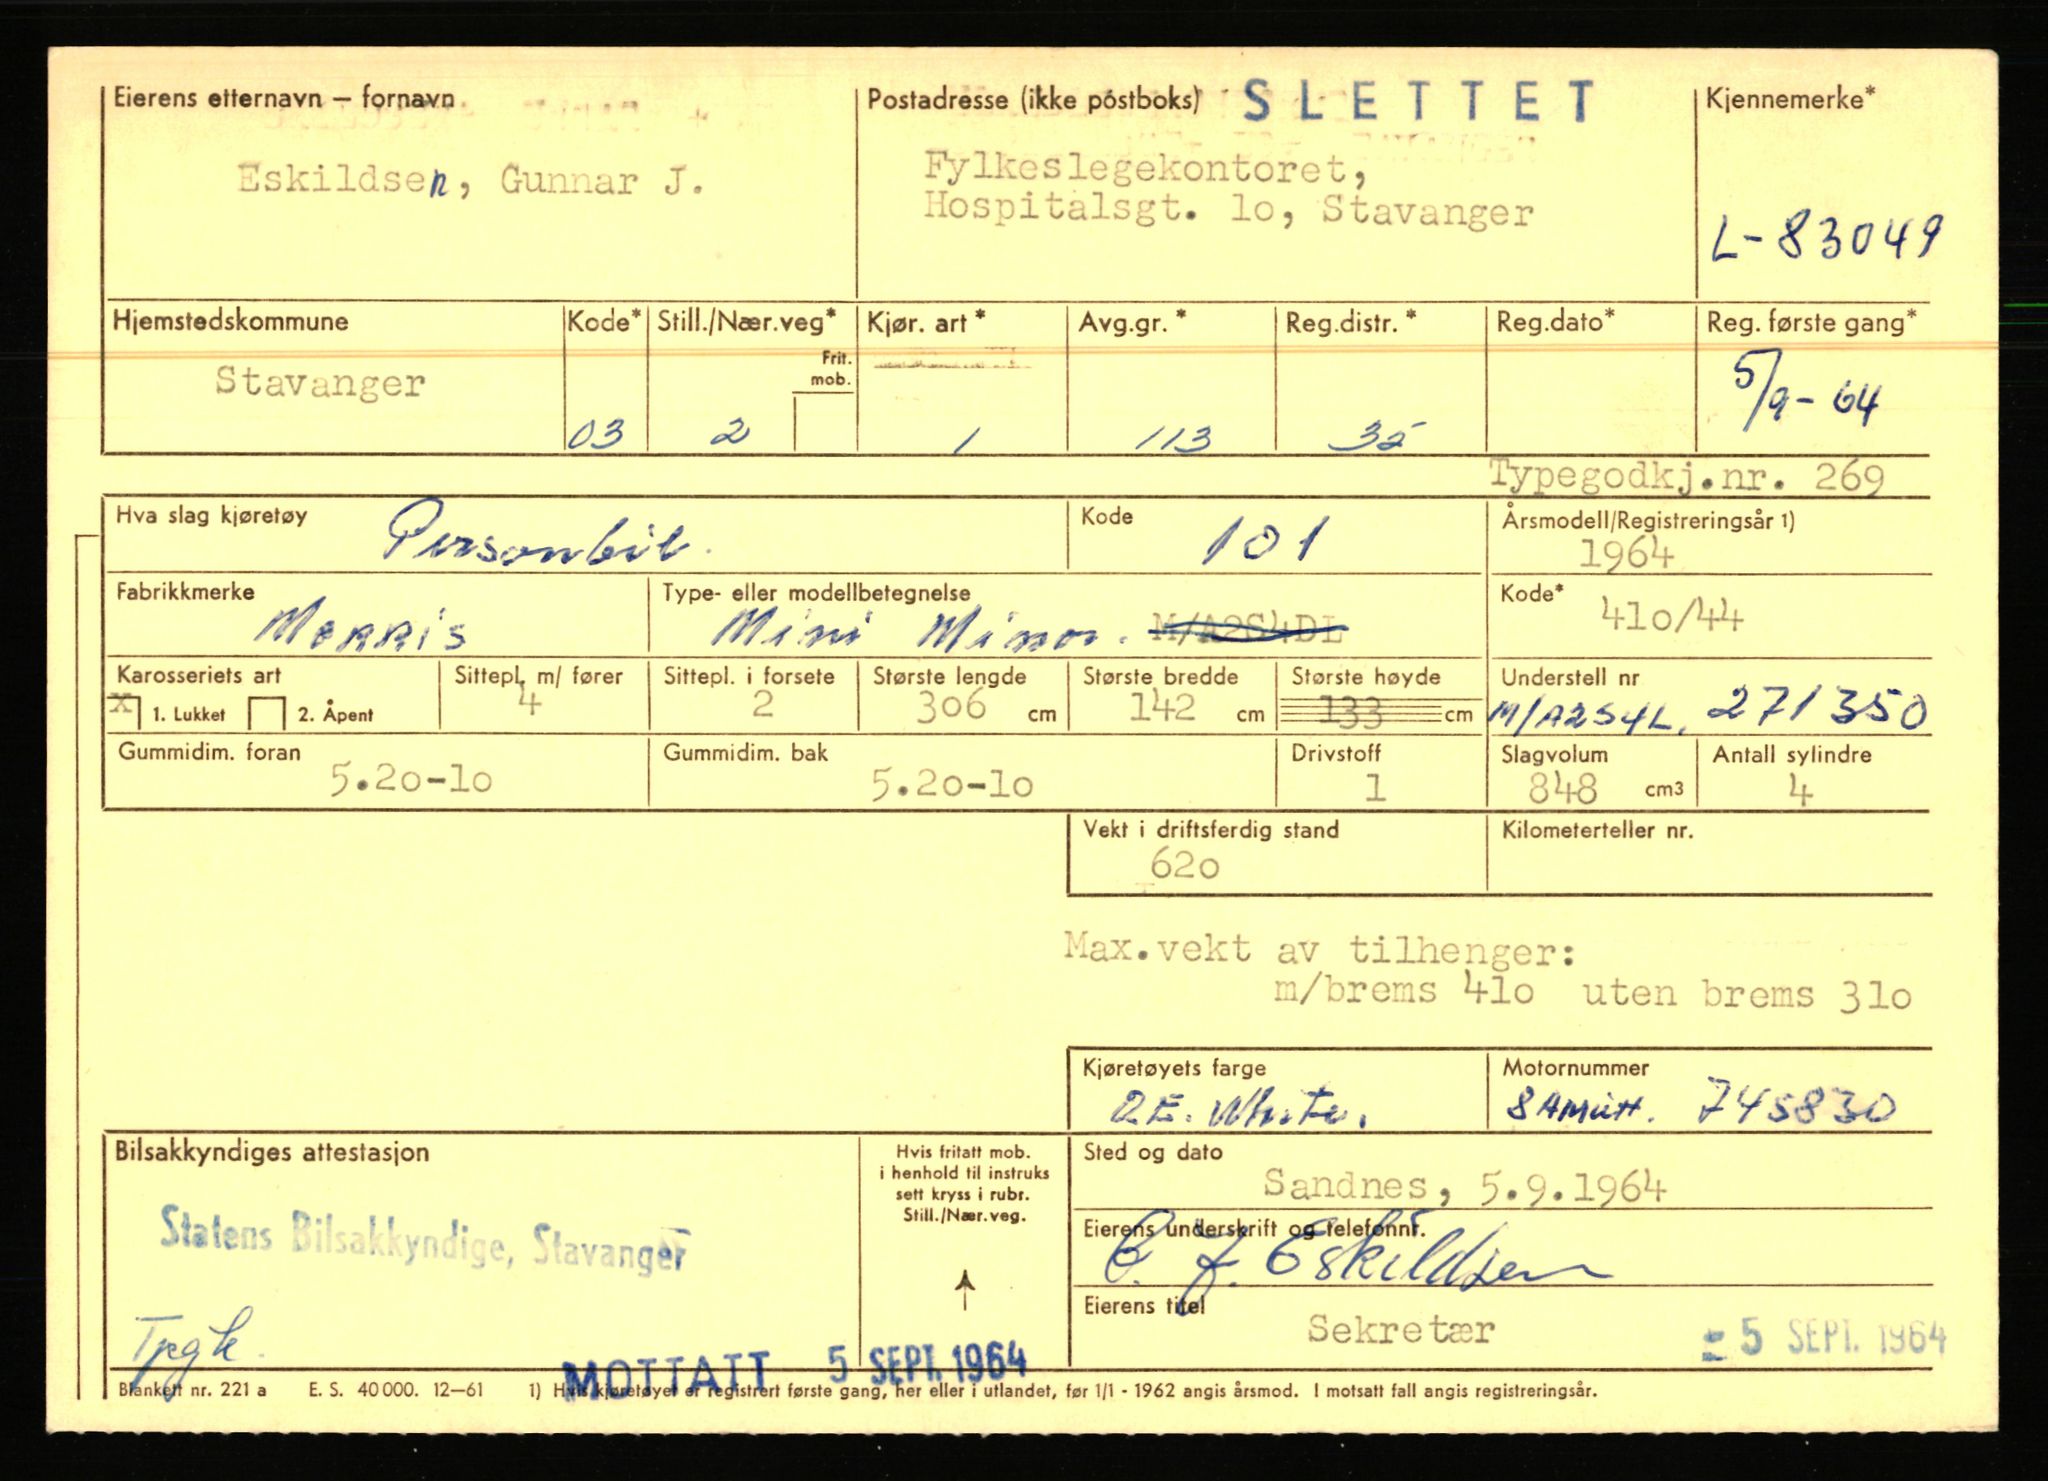 Eierens etternavn – fornavn
Eskildsen, Gunnar J.
Postadresse (ikke postboks) SLETTET
Fylkeslegekontoret,
Hospitalsgt. 1o, Stavanger
Kjennemerke*
L-83049
Hjemstedskommune
Stavanger
Kode*
03
Still./Nær.veg*
Frit.
mob.
2
Kjør. art *
1
Avg.gr. *
113
Reg.distr. *
35
Reg.dato*
Reg. første gang*
5/9-64
Typegodkj.nr. 269
Hva slag kjøretøy
Personbil.
Kode
101
Årsmodell/Registreringsår 1)
1964
Fabrikkmerke
Morris
Type- eller modellbetegnelse
Mini Minor. M/A2S4DL
Kode*
41o/44
Karosseriets art
x 1. Lukket 2. Åpent
Sittepl. m/ fører
4
Sittepl. i forsete
2
Største lengde
3o6 cm
Største bredde
142 cm
Største høyde
133 cm
Understell nr
M/A2S4L. 271350
Gummidim. foran
5.2o-1o
Gummidim. bak
5.2o-1o
Drivstoff
1
Slagvolum
848 cm3
Antall sylindre
4
Vekt i driftsferdig stand
62o
Kilometerteller nr.
Max.vekt av tilhenger:
m/brems 41o uten brems 31o
Kjøretøyets farge
O.E. White.
Motornummer
745830
Bilsakkyndiges attestasjon
Statens Bilsakkyndige, Stavanger
Tpgk.
Hvis fritatt mob.
i henhold til instruks
sett kryss i rubr.
Still./Nær.veg.
Sted og dato
Sandnes, 5.9.1964
Eierens underskrift og telefonnr.
G. J. Eskildsen
Eierens titel
Sekretær
5 SEPT. 1964
MOTTATT 5 SEPT. 1964
Blankett nr. 221 a E. S. 40 000. 12–61 1) Hvis kjøretøyet er registrert første gang, her eller i utlandet, før 1/1 - 1962 angis årsmod. I motsatt fall angis registreringsår.